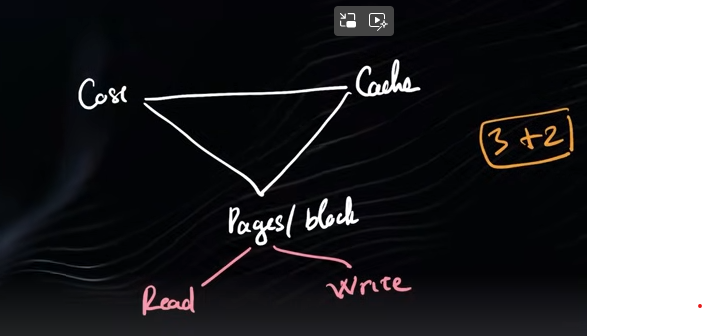 Cost
Cache
3 + 2
Pages/block
Read
Write